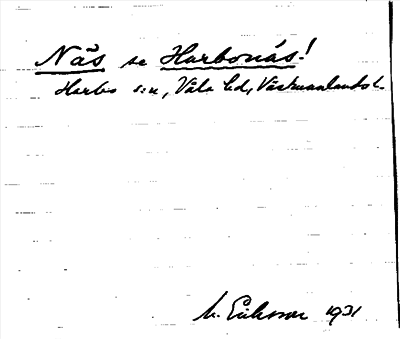 Näs se Harbonäs!
Harbo s:n, Våla hd, Västmanlands l.
M. Eriksson 1931